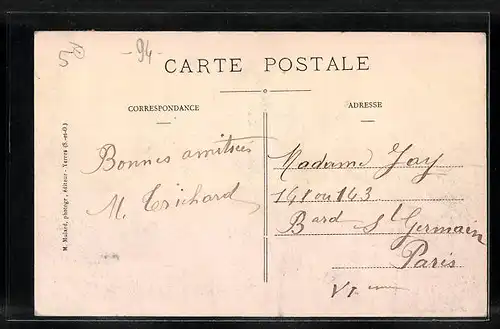 -94-
CARTE POSTALE
CORRESPONDANCE
ADRESSE
M. Mulard, photogr. éditeur - Yerres (S.-et-O.)
Bonnes amitiées
M. Trichard
Madame Jay
141 ou 143
Bard St Germain
Paris
VI eme